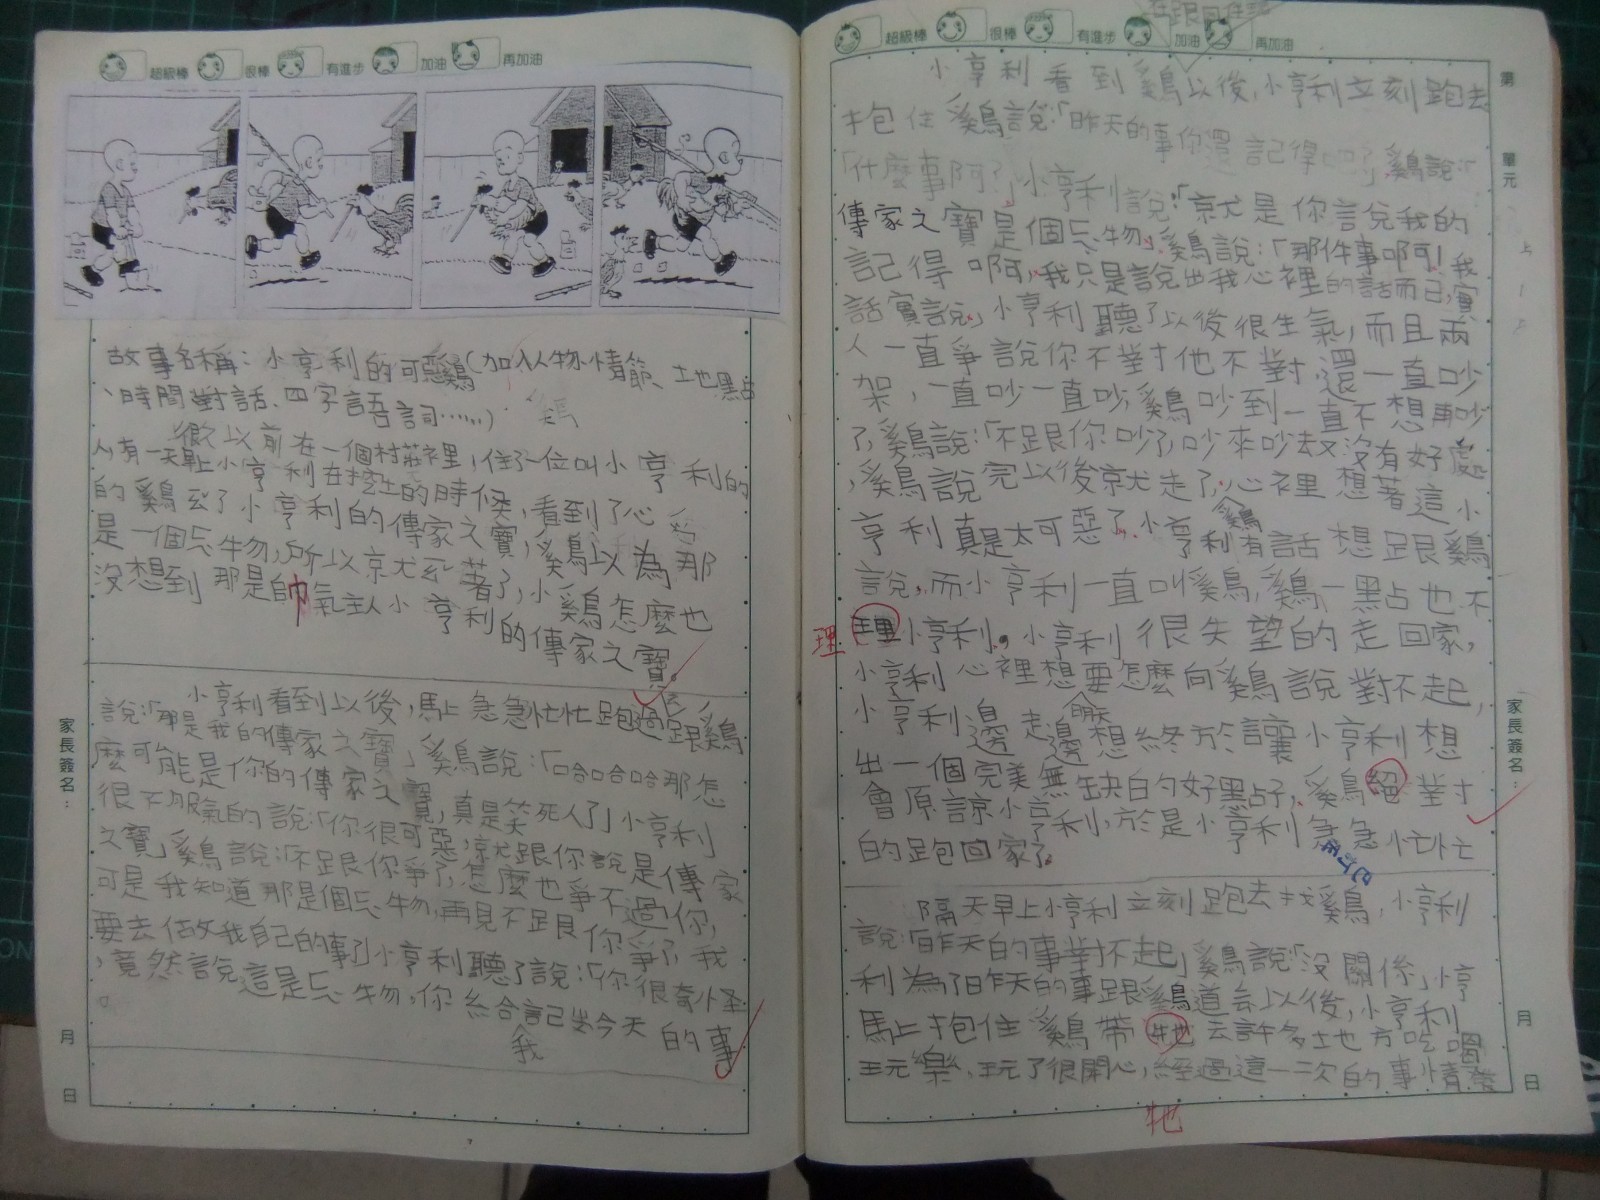 超級棒 很棒 有進步 加油 再加油
故事名稱:小亨利的可惡雞(加入人物、情節、地點
、時間、對話、四字語詞……)
很久以前在一個村莊裡,住了一位叫小亨利的
人,有一天早上小亨利在挖土的時候,看到了心愛
的雞玩了小亨利的傳家之寶,雞以為那
是一個玩物,所以就玩著了,小雞怎麼也
沒想到那是帥氣主人小亨利的傳家之寶。
小亨利看到以後,馬上急急忙忙跑過跟雞
說:「那是我的傳家之寶」雞說:「哈哈哈那怎
麼可能是你的傳家之寶,真是笑死人了」小亨利
很不服氣的說:「你很可惡,就跟你說是傳家
之寶」雞說:「不跟你爭了,怎麼也爭不過你,
可是我知道那是個玩物,再見不跟你爭了,我
要去做我自己的事了」小亨利聽了說:「你很奇怪
,竟然說這是玩物,你給我記出今天的事
。
家長簽名:
月
日
超級棒 很棒 有進步 加油 再加油
小亨利看到雞以後,小亨利立刻跑去
抱住雞說:「昨天的事你還記得嗎?」雞說:
「什麼事阿?」小亨利說:「就是你說我的
傳家之寶是個玩物」雞說:「那件事啊!我
記得啊,我只是說出我心裡的話而已,實
話實說」小亨利聽了以後很生氣,而且兩
人一直爭說你不對他不對,還一直吵
架,一直吵一直吵,雞吵到一直不想再吵
了,雞說:「不跟你吵了,吵來吵去又沒有好處
,雞說完以後就走了,心裡想著這小
亨利真是太可惡了,小亨利有話想跟雞
說,而小亨利一直叫雞,雞一點也不
理小亨利,小亨利很失望的走回家,
理
小亨利心裡想要怎麼向雞說對不起,
小亨利邊走邊想,終於讓小亨利想
出一個完美無缺的好點子,雞絕對
會原諒小亨利,於是小亨利急急忙忙
的跑回家了。
隔天早上小亨利立刻跑去找雞,小亨利
說:「昨天的事對不起」雞說「沒關係」小亨
利為了昨天的事跟雞道去以後,小亨利
馬上抱住雞帶牠去許多地方吃喝
玩樂,玩了很開心,經過這一次的事情
牠
第
單元
家長簽名:
月
日